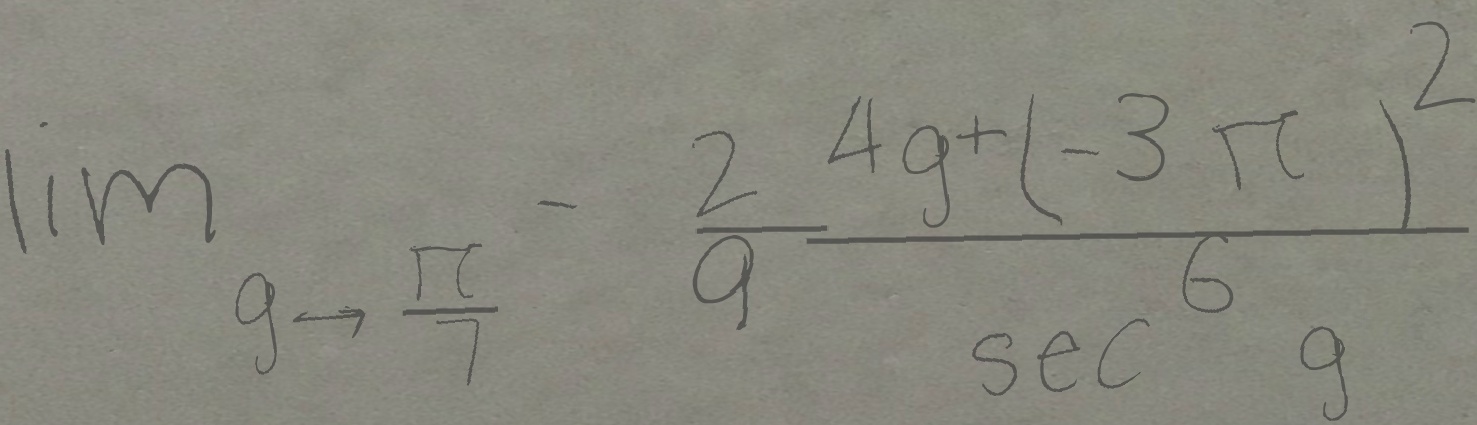 \lim_{g \to \frac{\pi}{7}} - \frac{2}{9} \frac{4g + (-3\pi)^2}{\sec^6 g}